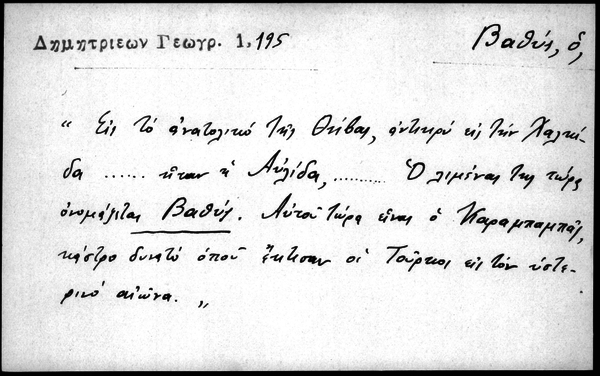 Δημητριεων Γεωγρ. 1, 195
Βαθύς, ὁ,
“ Εἰς τὸ ἀνατολικὸ τῆς Θήβας, ἀντικρὺ εἰς τὴν Χαλκί-
δα ...... ἦταν ἡ Αὐλίδα, .......... Ὁ λιμένας της τώρα
ὀνομάζεται Βαθύς. Αὐτοῦ τώρα εἶναι ὁ Καραμπαμπᾶς,
κάστρο δυνατὸ ὁποῦ ἔκτισαν οἱ Τοῦρκοι εἰς τὸν ὑστε-
ρινὸ αἰῶνα. „